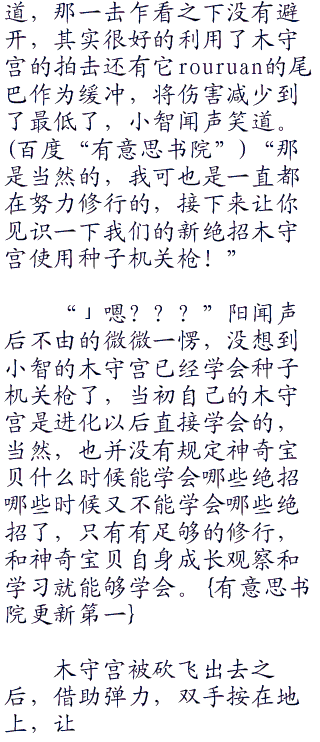 道，那一击乍看之下没有避
开，其实很好的利用了木守
宫的拍击还有它rouruan的尾
巴作为缓冲，将伤害减少到
了最低了，小智闻声笑道。
(百度“有意思书院”)“那
是当然的，我可也是一直都
在努力修行的，接下来让你
见识一下我们的新绝招木守
宫使用种子机关枪！”
“」嗯？？？”阳闻声
后不由的微微一愣，没想到
小智的木守宫已经学会种子
机关枪了，当初自己的木守
宫是进化以后直接学会的，
当然，也并没有规定神奇宝
贝什么时候能学会哪些绝招
哪些时候又不能学会哪些绝
招了，只有有足够的修行，
和神奇宝贝自身成长观察和
学习就能够学会。{有意思书
院更新第一}
木守宫被砍飞出去之
后，借助弹力，双手按在地
上，让